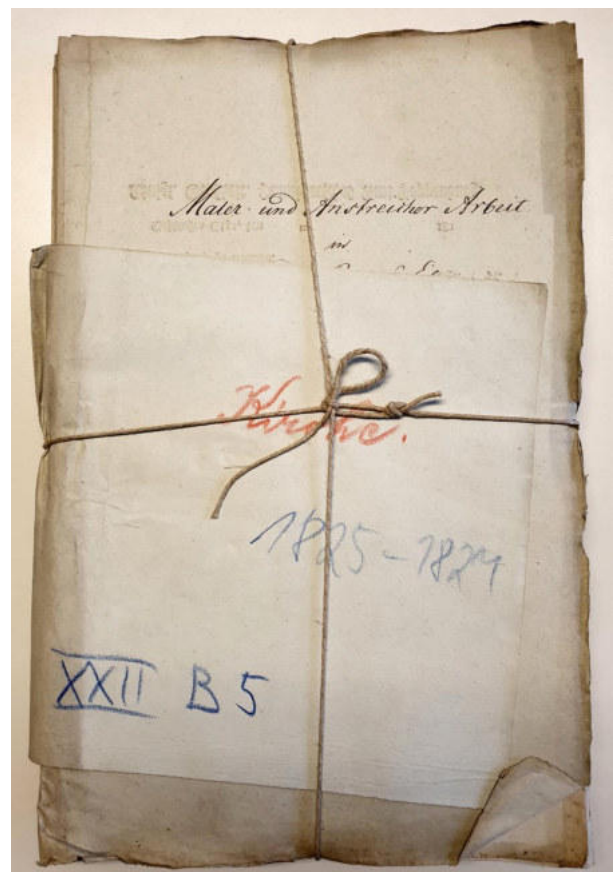 Maler und Anstreicher Arbeit
in
Kirche.
1825-1827
XXII B 5